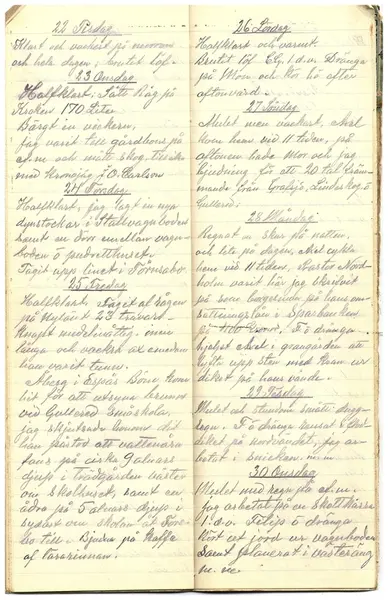 22 Tisdag
Klart och vackert på morgon
och hela dagen, brutit löf.
23 Onsdag
Halfklart. Sått Råg på
Kroken 170 Liter
Bärgt in vickern,
Jag varit till gårdhons på
e.m och mätt skog tillika
med kronojäg J.O. Carlson
24 Torsdag
Halfklart, jag lagt in nya
i Stallvagnboden
samt en dörr emellan vagn
boden o pudretthuset.
Tagit upp linet i Törnsabo.
25 Fredag
Halfklart. Tagit al rågen
på Nyland 23 travar
medelmåttig men
långa och vackra ax emedan
han varit tunn.
Abegg i Espås Böne kom
hit för att utsyna brunnar
ved Gullered Småskola,
jag skjutsade honom dit
han påstod att vattenår
fans på cirka 9 alnars
djup i Trädgården väster
om skolhuset, samt en
ådra på 5 alnars djup i
sydost om skolan åt Före
bo till. Bjudna på Kaffe
af Vararinnan.
26 Lördag
Halfklart och varmt.
Brutit löf Eg. i.d.v. Drängar
på Mon och kör hö efter
aftonvard.
27 Söndag
Mulet men vackert, Axel
kom hem vid 11 tiden, på
aftonen hade Mor och jag
bjudning för att 20 tal främ
mande från Grafsjö, Lindåskog o
Gullered.
28 Måndag
Regnat en skur på natten,
och lite på dagen, Axel cyklade
hem vid 11 tiden, Kastor Nord
holm varit här jag
på som borgesman på hans om
sättningslån i Sparbanken
på Fi o drängar
hjelpt Axel i granngården att
fylla upp sten med Kram ur
diket på hans vände.
29 Tisdag
Mulet och stundom smått dugg
regn. Fi o drängar rensat i Ås
diket på nordvändet, jag ar
betat i snickeri m.m.
30 Onsdag
Mulet med regn på e.m.
jag arbetat på en
i.d.v. Filip o drängar
kört ut jord ur vagnboden
samt planerat i västeräng
m.m.